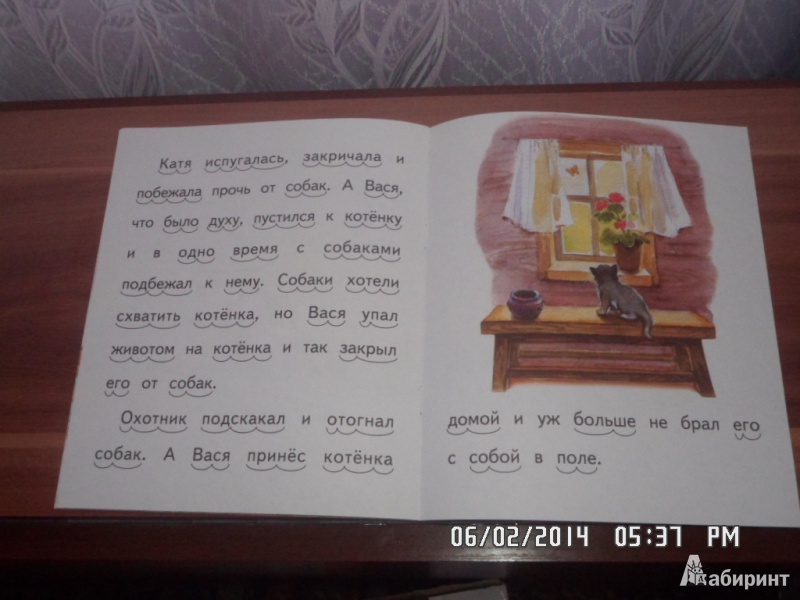 Катя испугалась, закричала и
побежала прочь от собак. А Вася,
что было духу, пустился к котёнку
и в одно время с собаками
подбежал к нему. Собаки хотели
схватить котёнка, но Вася упал
животом на котёнка и так закрыл
его от собак.
Охотник подскакал и отогнал
собак. А Вася принёс котёнка
домой и уж больше не брал его
с собой в поле.
06/02/2014 05:37 PM
Лабиринт